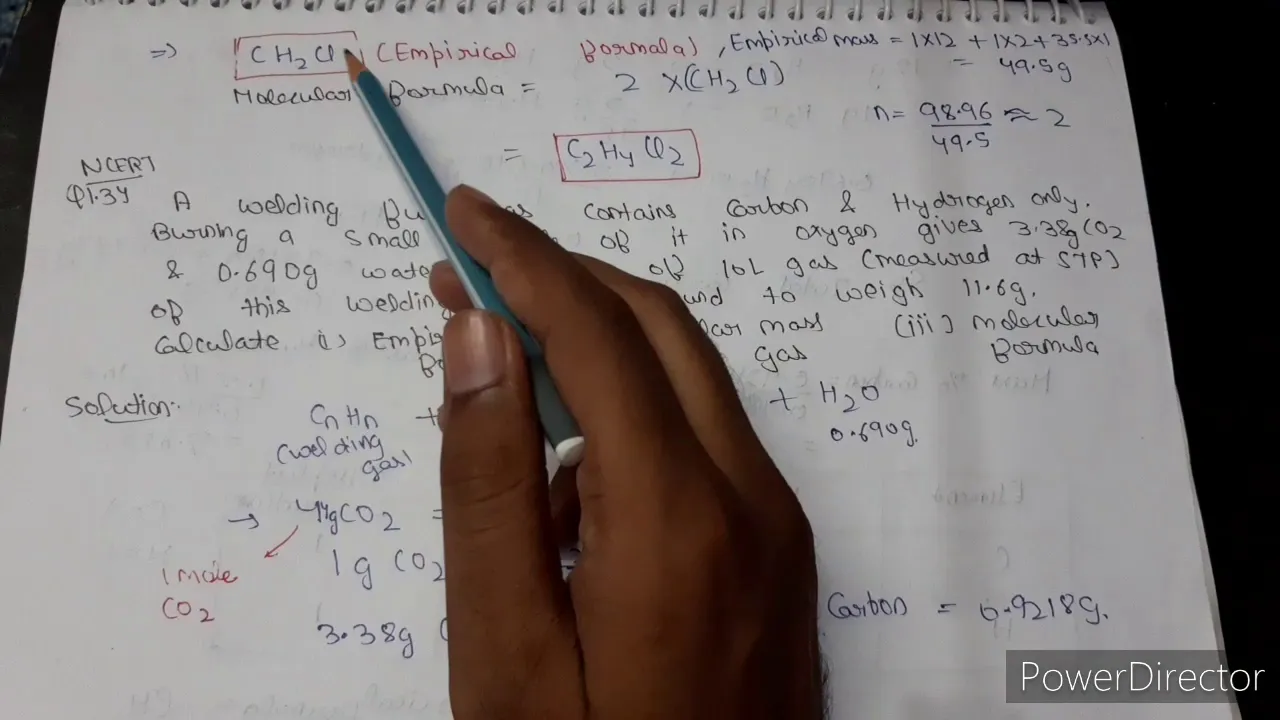 => CH2Cl (Empirical Formula), Empirical mass = 1x12 + 1x2 + 35.5x1
= 49.5g
Molecular Formula = 2 x(CH2Cl)
n = 98.96/49.5 ≈ 2
= C2H4Cl2
NCERT
Q1.34 A welding Fu contains Carbon & Hydrogen only.
Burning a small of it in oxygen gives 3.38g CO2
& 0.690g wate of 10L gas (measured at STP)
of this welding und to weigh 11.6g.
Calculate (i) Empi lar mass (iii) molecular
Fo gas Formula
Solution:- CnHn + + H2O
(welding gas) 0.690g.
→ 44gCO2 =
1 mole CO2
1g CO2
3.38g Carbon = 0.9218g.
PowerDirector